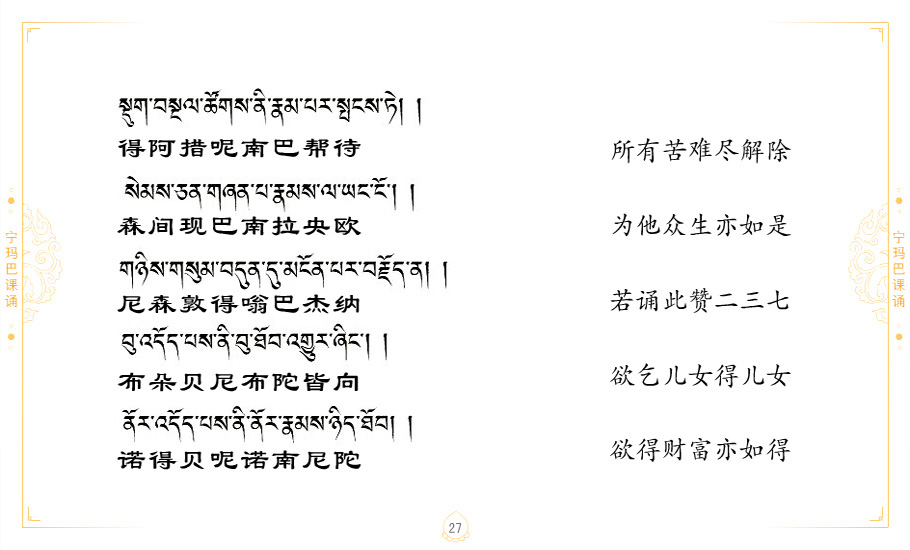 སྡུག་བསྔལ་ཚོགས་ནི་རྣམ་པར་སྤངས་ཏེ། །
得阿措呢南巴帮待
所有苦难尽解除
སེམས་ཅན་གཞན་པ་རྣམས་ལ་ཡང་ངོ་། །
森间现巴南拉央欧
为他众生亦如是
གཉིས་གསུམ་བདུན་དུ་མངོན་པར་བརྗོད་ན། །
尼森敦得嗡巴杰纳
若诵此赞二三七
བུ་འདོད་པས་ནི་བུ་ཐོབ་འགྱུར་ཞིང་། །
布朵贝尼布陀皆向
欲乞儿女得儿女
ནོར་འདོད་པས་ནི་ནོར་རྣམས་ཉིད་ཐོབ། །
诺得贝呢诺南尼陀
欲得财富亦如得
宁玛巴课诵
宁玛巴课诵
27